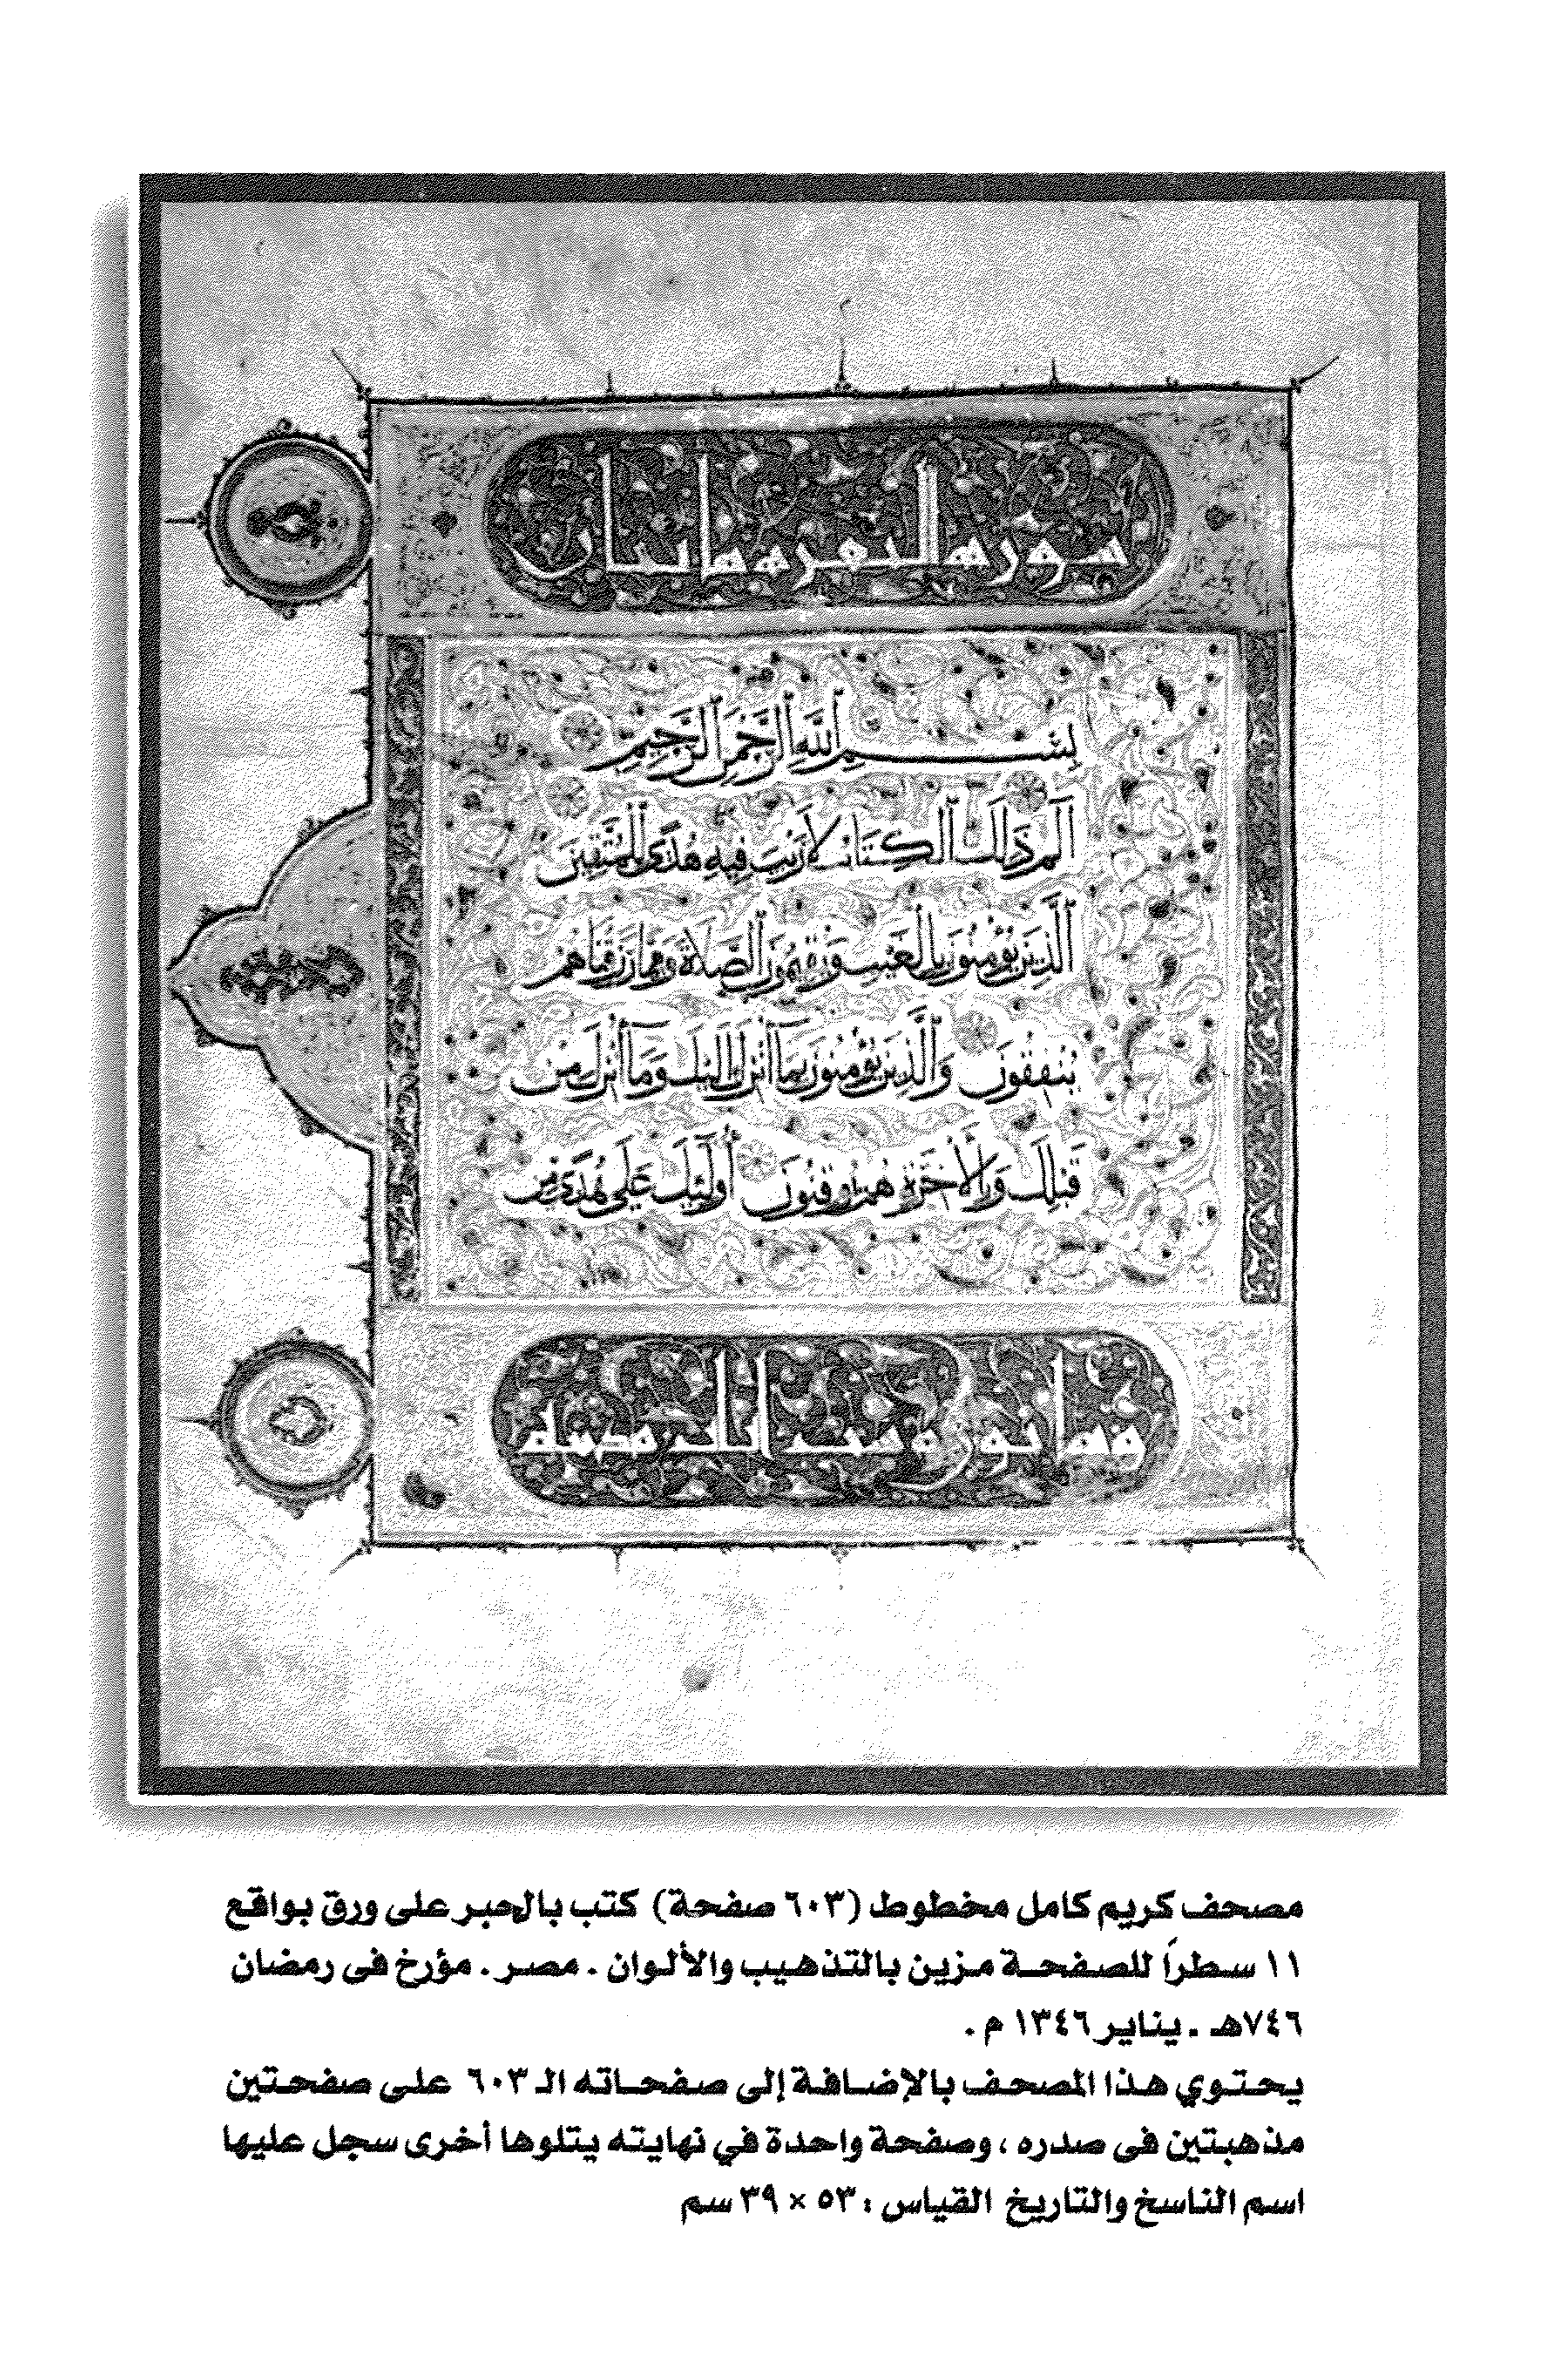 سورة البقرة مائتان
بِسْمِ ٱللَّهِ ٱلرَّحْمَٰنِ ٱلرَّحِيمِ
الم ذَلِكَ ٱلْكِتَابُ لَا رَيْبَ فِيهِ هُدًى لِلْمُتَّقِينَ
ٱلَّذِينَ يُؤْمِنُونَ بِٱلْغَيْبِ وَيُقِيمُونَ ٱلصَّلَاةَ وَمِمَّا رَزَقْنَاهُمْ
يُنْفِقُونَ وَٱلَّذِينَ يُؤْمِنُونَ بِمَا أُنْزِلَ إِلَيْكَ وَمَا أُنْزِلَ مِنْ
قَبْلِكَ وَبِٱلْآخِرَةِ هُمْ يُوقِنُونَ أُولَئِكَ عَلَى هُدًى مِنْ
وثمانون وست آيات
مصحف كريم كامل مخطوط (٦٠٣ صفحة) كتب بالحبر على ورق بواقع
١١ سطراً للصفحة مزين بالتذهيب والألوان . مصر . مؤرخ فى رمضان
٧٤٦هـ . يناير ١٣٤٦ م .
يحتوي هذا المصحف بالإضافة إلى صفحاته الـ ٦٠٣ على صفحتين
مذهبتين فى صدره ، وصفحة واحدة في نهايته يتلوها أخرى سجل عليها
اسم الناسخ والتاريخ القياس : ٥٣ × ٣٩ سم